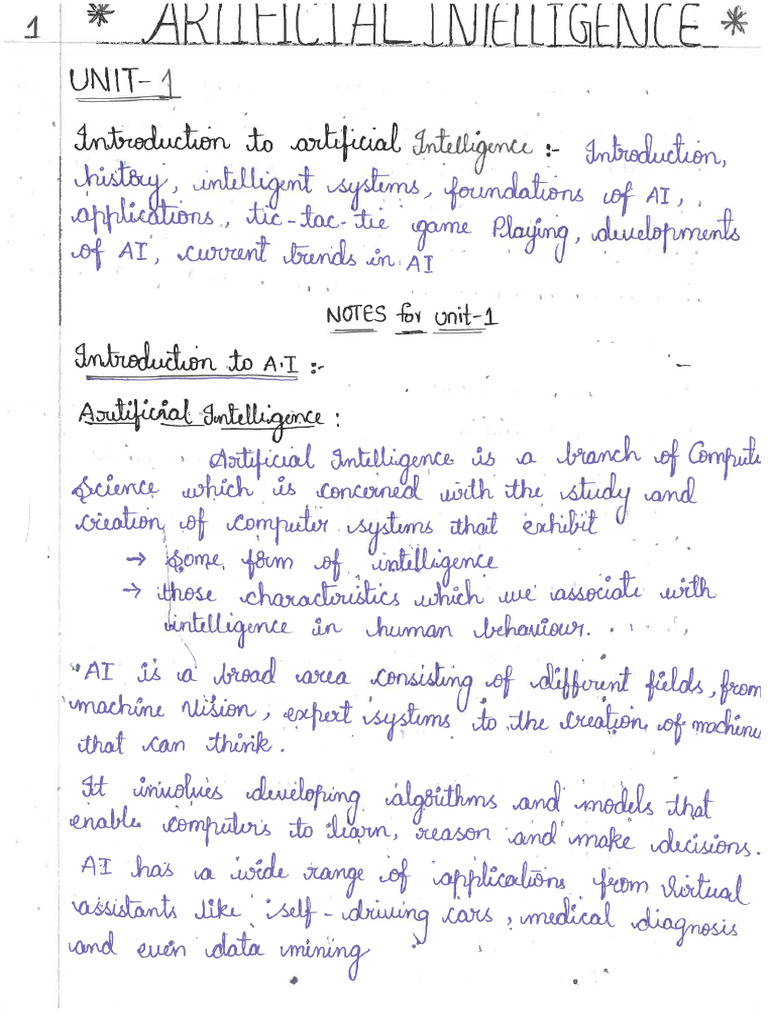 1 * ARTIFICIAL INTELLIGENCE *
UNIT-1
Introduction to artificial Intelligence :- Introduction,
history, intelligent systems, foundations of AI,
applications, tic-tac-tie game Playing, developments
of AI, current trends in AI
NOTES for unit-1
Introduction to A.I :-
Artificial Intelligence :
Artificial Intelligence is a branch of Compute
Science which is concerned with the study and
creation of computer systems that exhibit
→ some form of intelligence
→ those characteristics which we associate with
intelligence in human behaviour.
AI is a broad area consisting of different fields, from
machine vision, expert systems to the creation of machine
that can think.
It involves developing algorithms and models that
enable computers to learn, reason and make decisions.
AI has a wide range of applications from virtual
assistants like self-driving cars, medical diagnosis
and even data mining